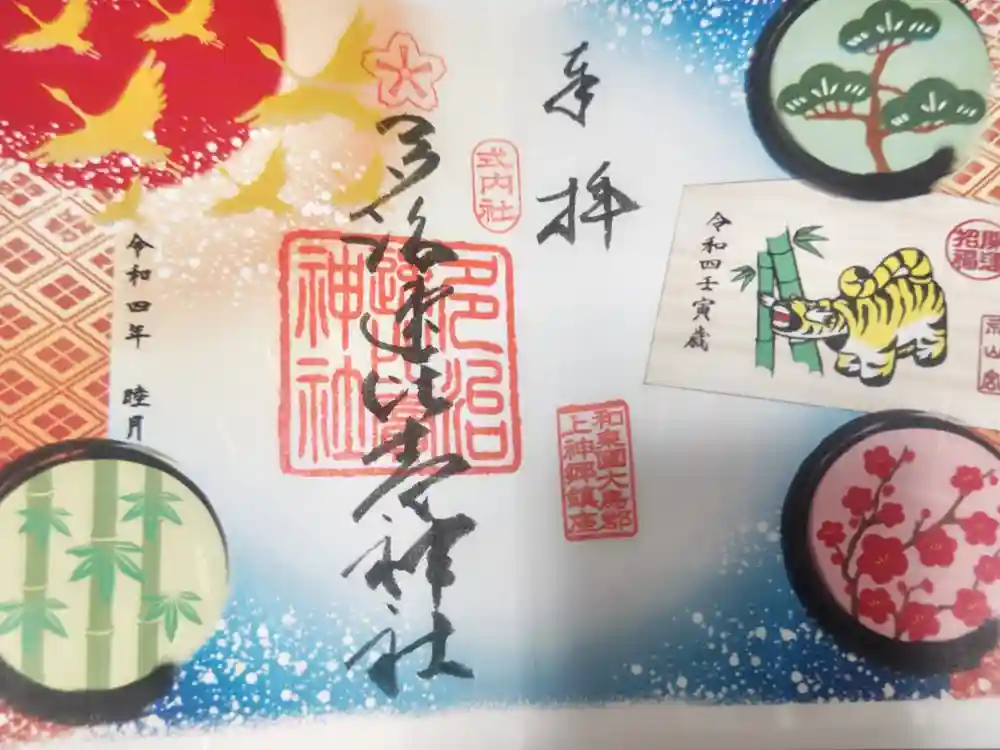 開運
招福
令和四壬寅歳
奉拝
和泉國大鳥郡
上神郷鎮座
式内社
多治速比売神社
多治
速比賣
神社
令和四年 睦月